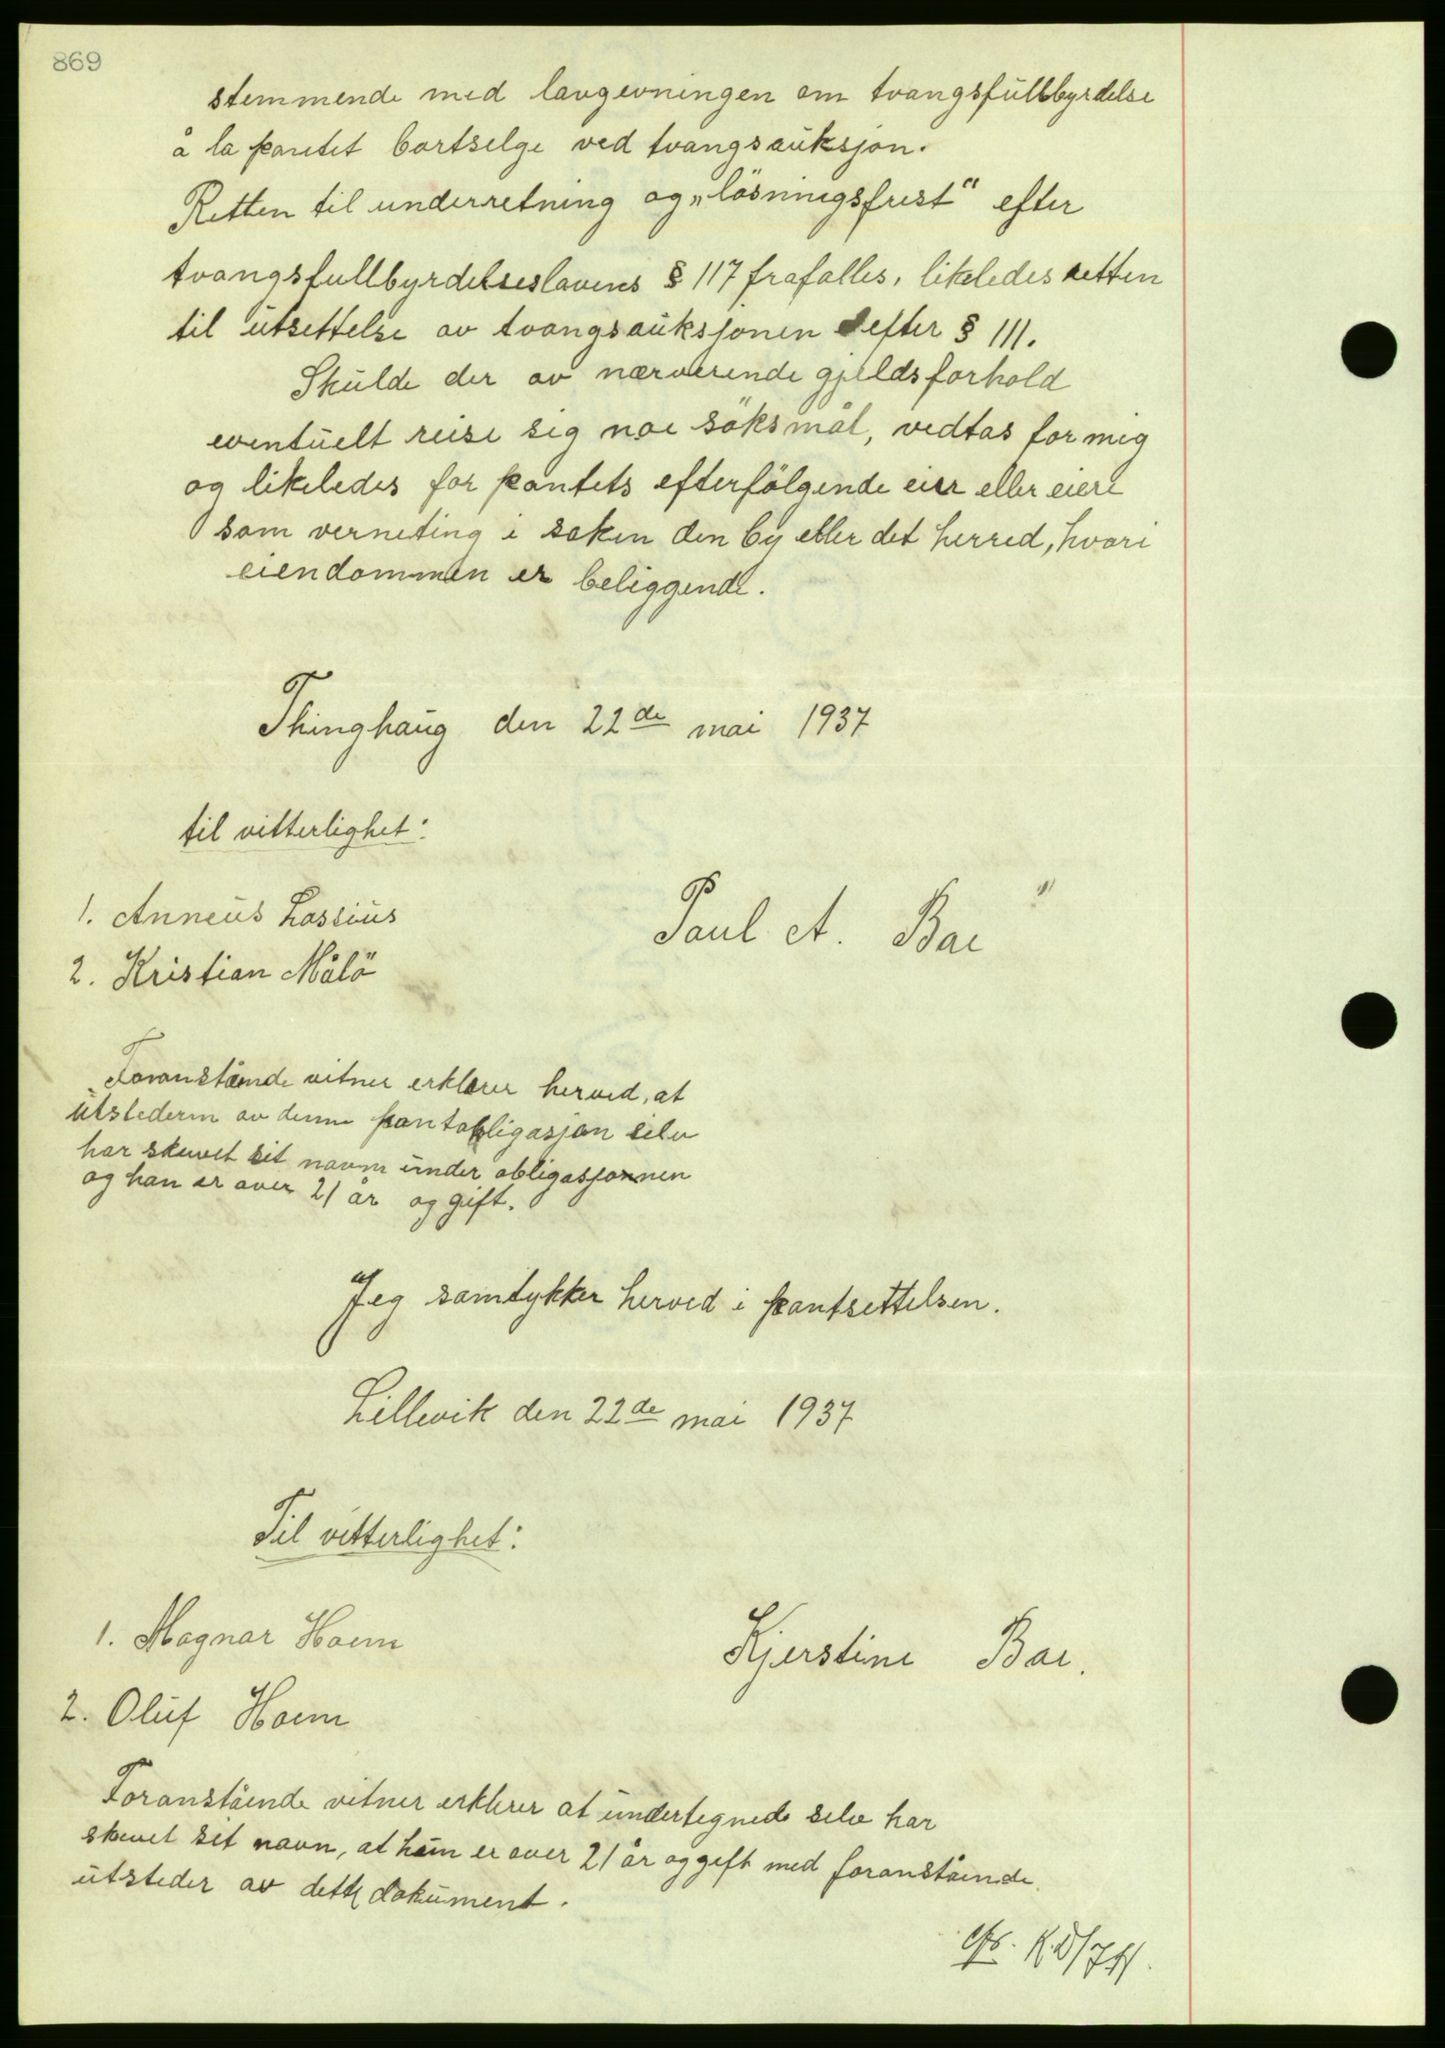 869
stemmende med lovgevningen om tvangsfullbyrdelse
å la pantet bortselge ved tvangsauksjon.
Retten til underretning og „løsningsfrist“ efter
tvangsfullbyrdelseslovens § 117 frafalles, likeledes retten
til utsettelse av tvangsauksjonen efter § 111.
Skulde der av nærverende gjeldsforhold
eventuelt reise sig noe söksmål, vedtas for mig
og likeledes for pantets efterfölgende eier eller eiere
som verneting i saken den by eller det herred, hvori
eiendommen er beliggende.
Thinghaug den 22de mai 1937
til vitterlighet:
1. Anneus Lossius
Paul A. Boe
2. Kristian Målö
Foranstående vitner erklærer herved, at
utstederen av denne pantobligasjon selv
har skrevet sit navn under obligasjonnen
og han er over 21 år og gift.
Jeg samtykker herved i pantsettelsen.
Lillevik den 22de mai 1937
Til vitterlighet:
1. Magnar Hoem
Kjerstine Boe.
2. Oluf Hoem
Foranstående vitner erklerer at undertegnede selv har
skrevet sit navn, at hun er over 21 år og gift med foranstående
utsteder av dette dokument.